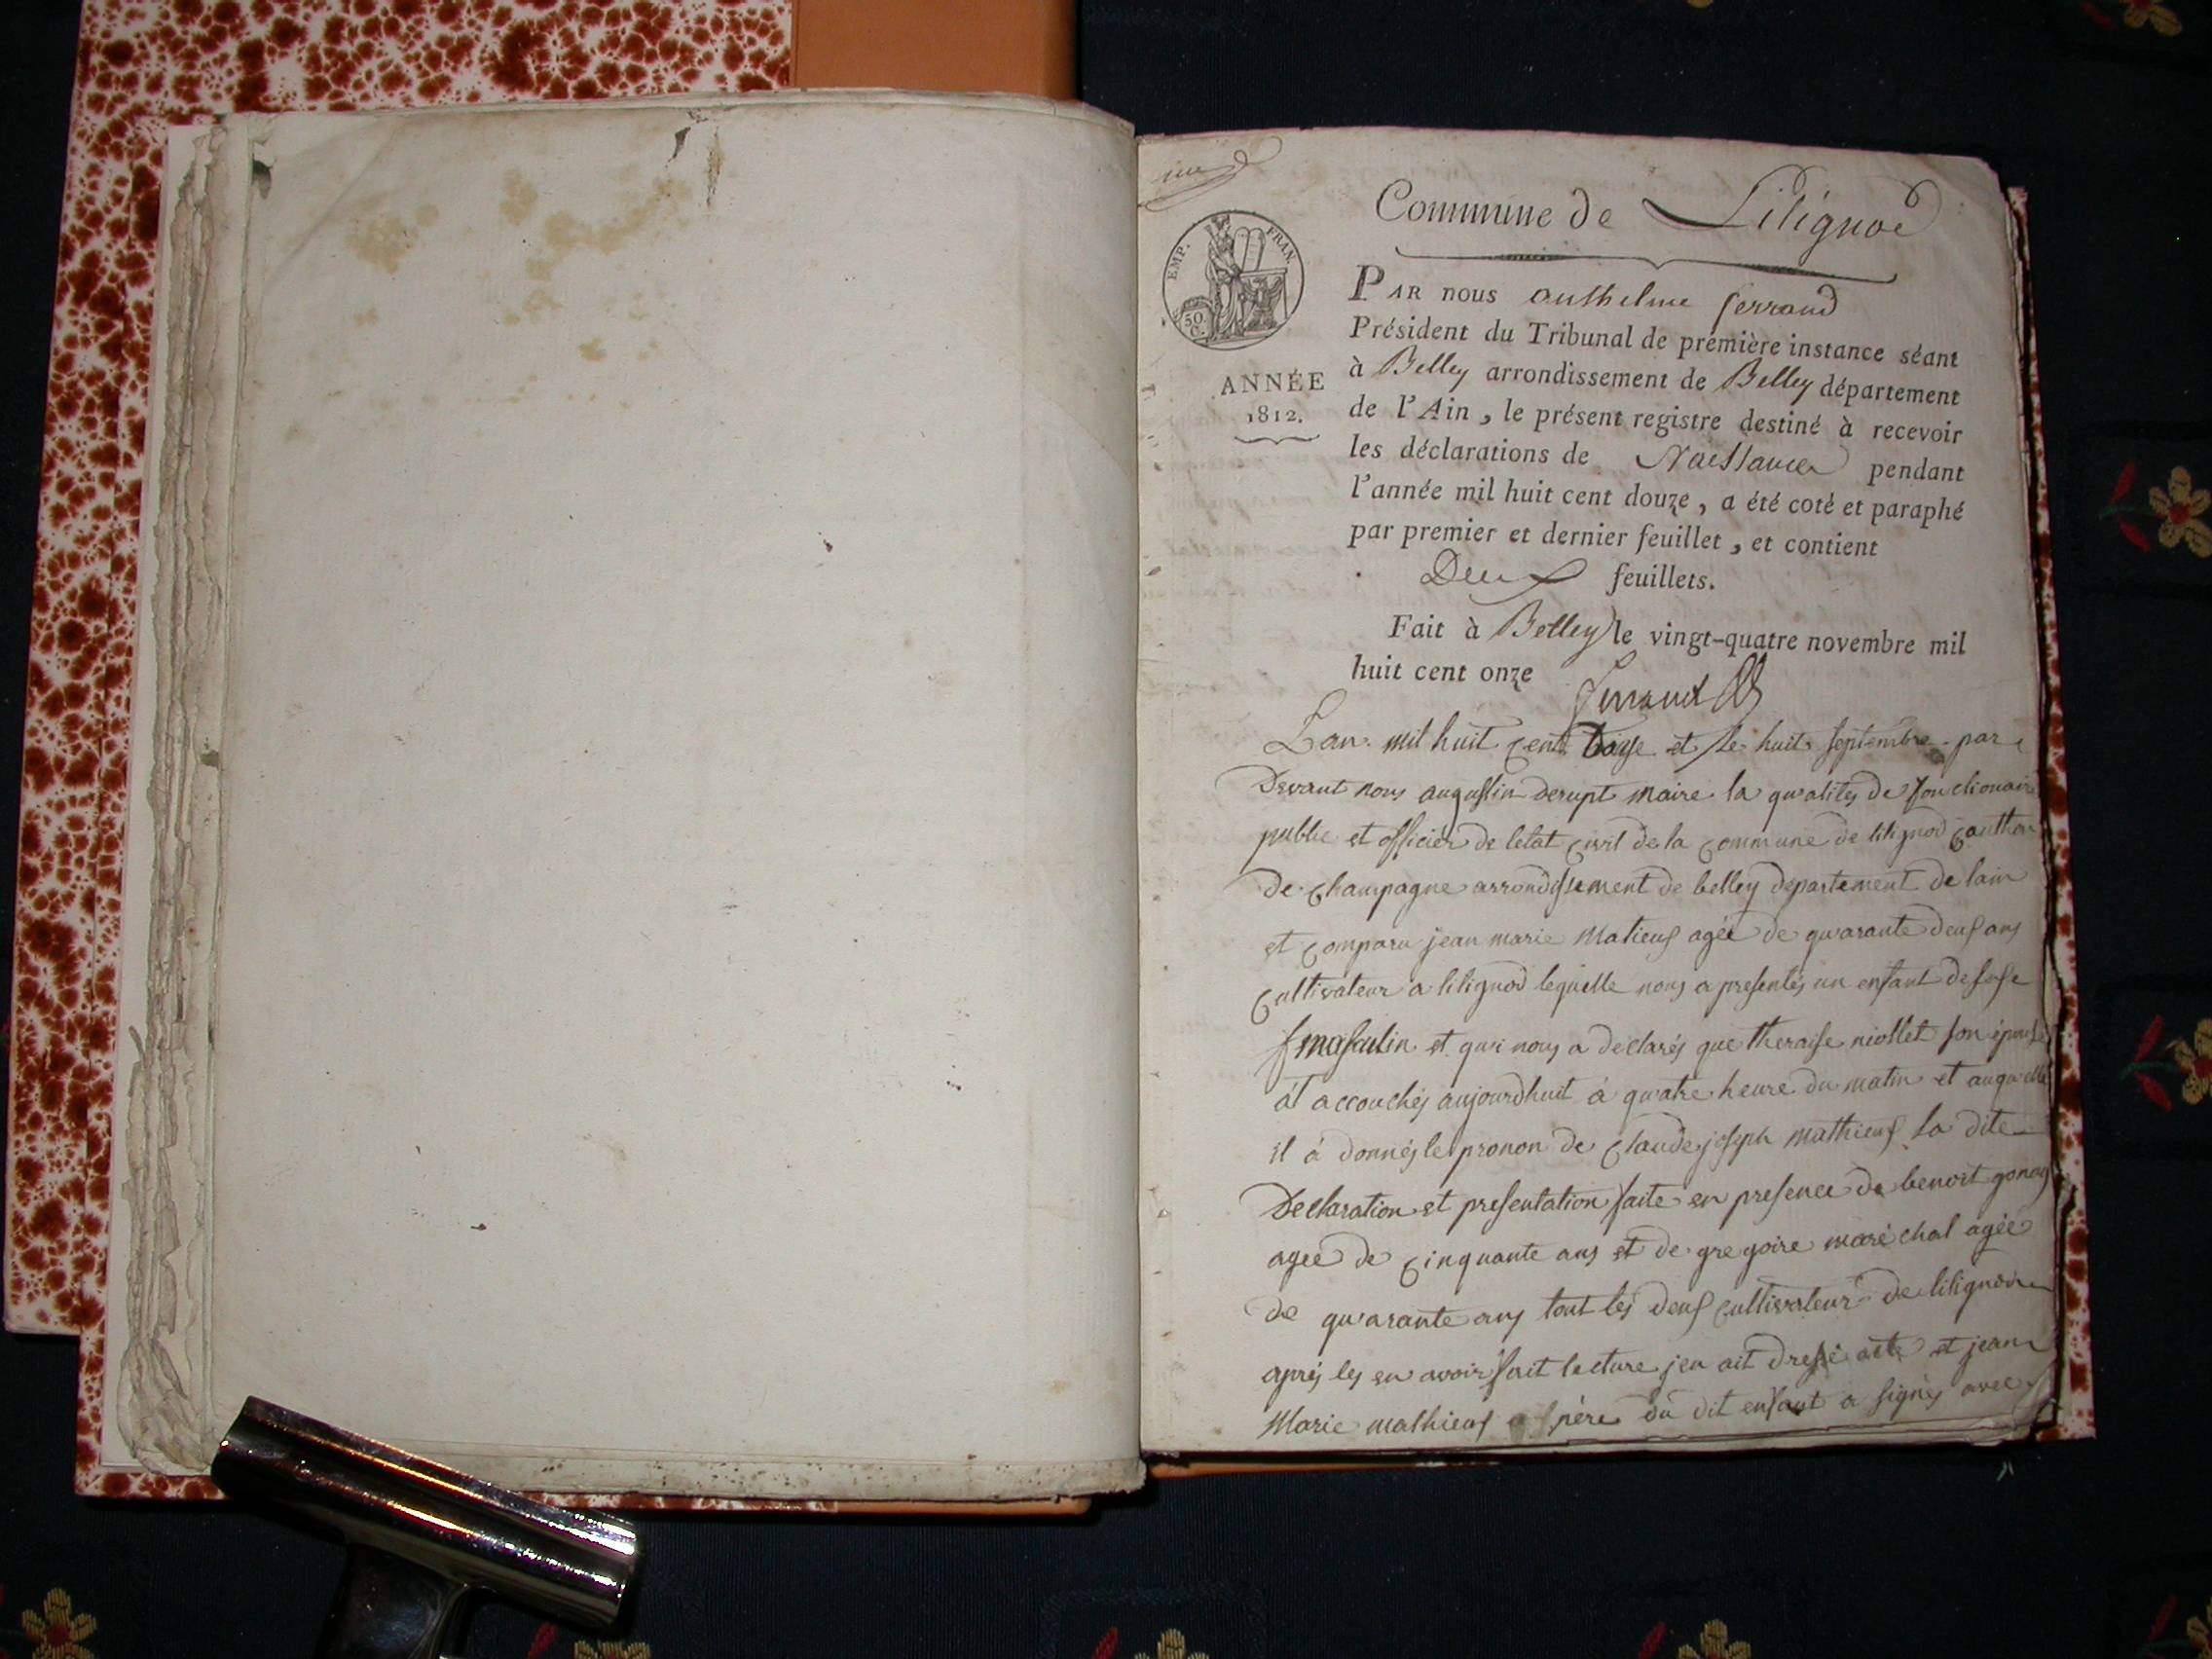 Commune de Lilignod
EMP. FRAN.
50
C.
ANNÉE
1812.
PAR nous anthelme ferrand
Président du Tribunal de première instance séant
à Belley arrondissement de Belley département
de l'Ain, le présent registre destiné à recevoir
les déclarations de Naissances pendant
l'année mil huit cent douze, a été coté et paraphé
par premier et dernier feuillet, et contient
Deux feuillets.
Fait à Belley le vingt-quatre novembre mil
huit cent onze
Lan mil huit cent et le huit septembre par
Devant nous augustin derupt maire la qualités de fonctionaire
public et officier de letat civil de la commune de lilignod canthon
de champagne arrondissement de belley departement de lain
et comparu jean marie Matieus agée de quarante deus ans
cultivateur a lilignod lequelle nous a presentés un enfant de sese
masculin et qui nous a déclarés que theraise niollet son épouse
at accouchés aujourdhuit à quatre heure du matin et auquelle
il à donnés le pronon de claude joseph mathieus la dite
Declaration et presentation faite en presence de benoit gonod
agee de cinquante ans et de gregoire maréchal agée
de quarante ans tout les deus cultivateur de lilignod
aprés les en avoir fait lecture jen ait dressé acte et jean
Marie mathieus père du dit enfant a signés avec